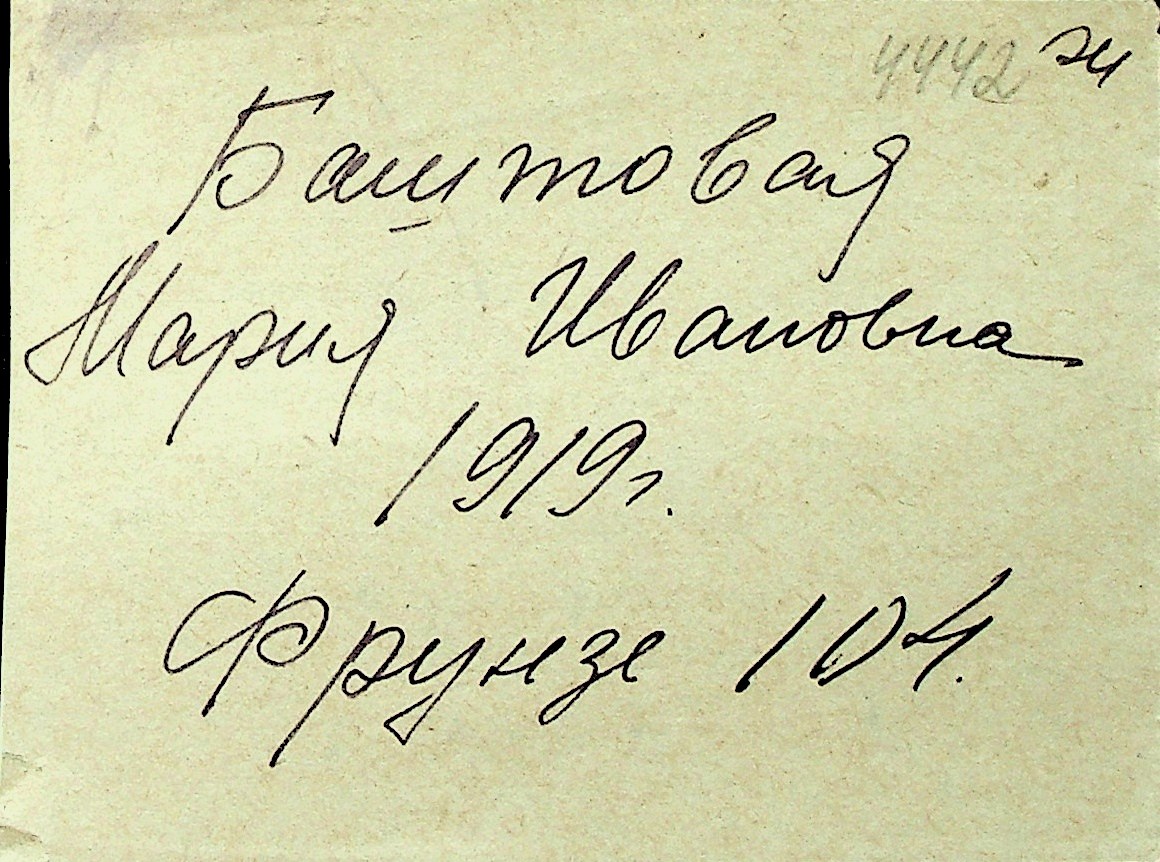 4442
Баштовая
Мария Ивановна
1919г.
Фрунзе 104.